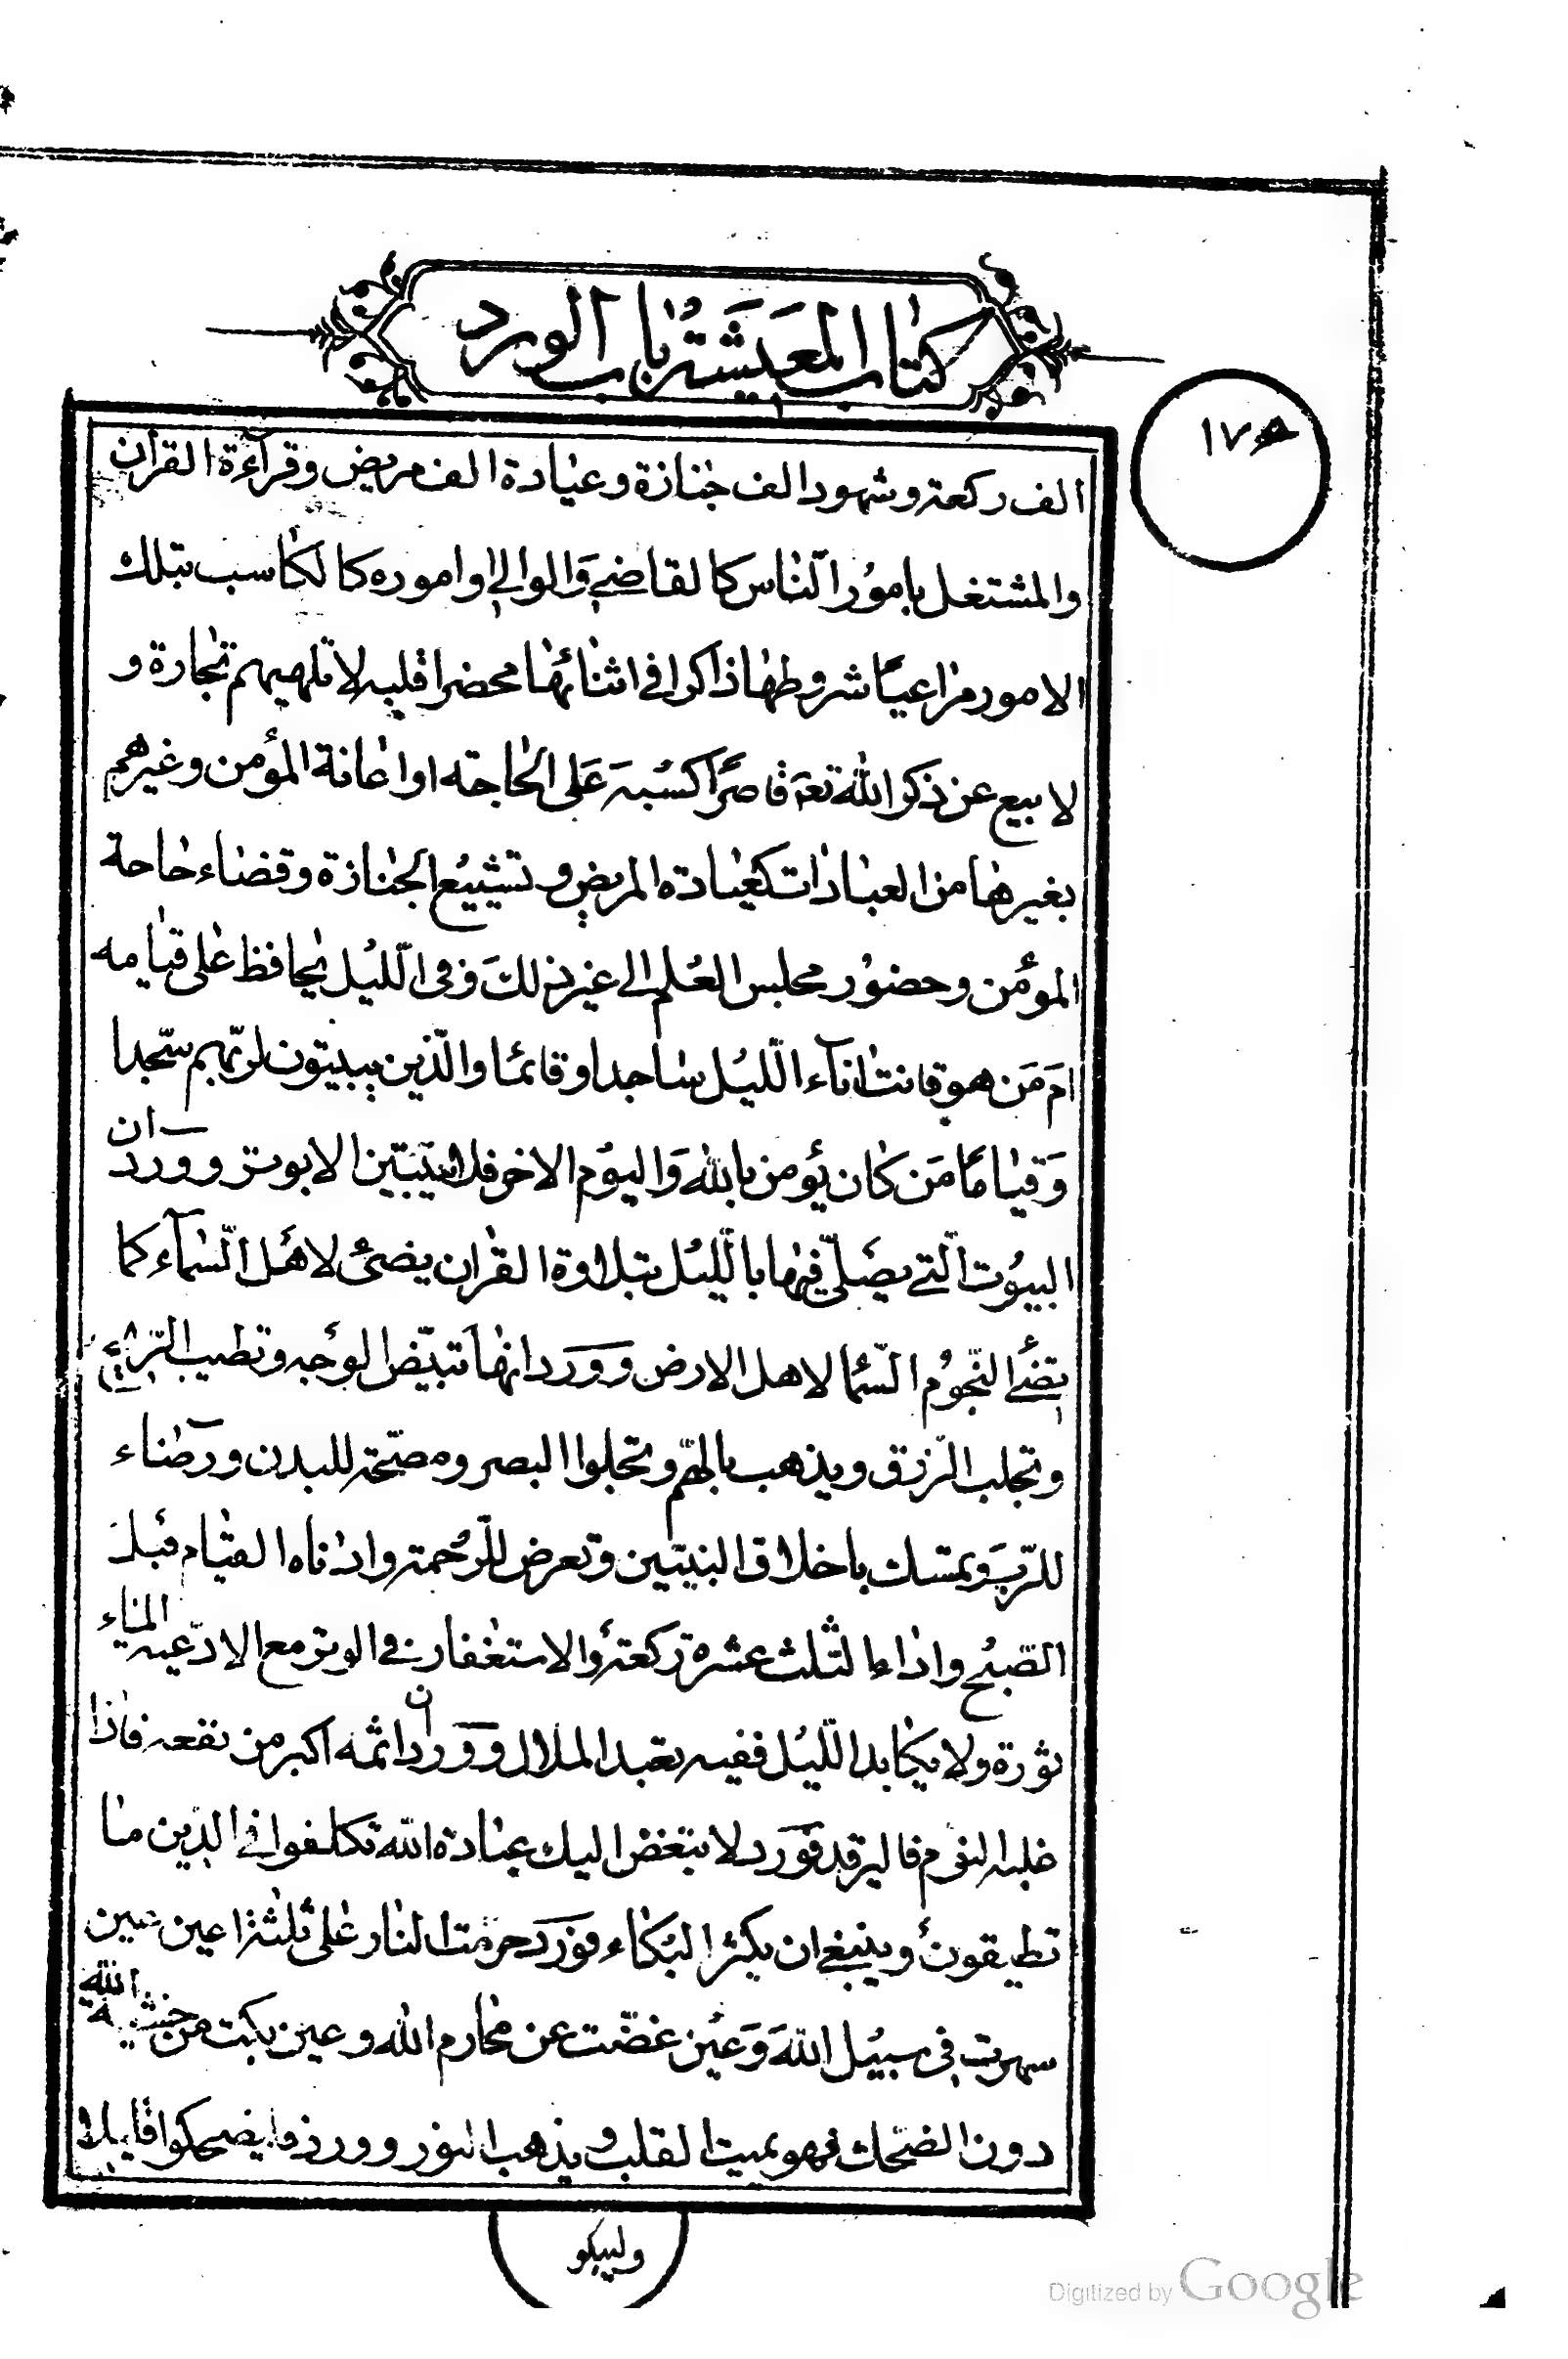 كتاب المعيشة باب الورد
١٧٥
الف ركعة و شهود الف جنازة و عيادة الف مريض و قرآءة القرآن
والمشتغل بامور الناس كالقاضي والوالي او اموره كالكاسب بتلك
الامور مراعيا شروطها ذاكرا في اثنائها محضرا قلبه لا تلهيهم تجارة و
لا بيع عن ذكر الله تعم قاصرا كسبه على الحاجته او اعانة المؤمن وغيرهم
بغيرها من العبادات كعيادة المريض و تشييع الجنازة وقضاء حاجة
المؤمن و حضور مجلس العلم الى غير ذلك و في الليل يحافظ على قيامه
ام من هو قانت انآء الليل ساجدا و قائما والذين يبيتون لربهم سجدا
وقياما من كان يؤمن بالله واليوم الاخر فلا يبيتن الا بوتر و ورد ان
البيوت التي يصلى فيها بالليل بتلاوة القران يضئ لاهل السمآء كما
تضئ النجوم السما لاهل الارض و ورد انها تبيض الوجه و تطيب الريح
و تجلب الرزق و يذهب بالهم و تجلوا البصر و مصحة للبدن و رضاء
للرب و تمسك باخلاق النبيين و تعرض للرحمة و ادناه القيام قبل
الصبح و اداء الثلث عشرة ركعة والاستغفار في الوتر مع الادعية
ثورة ولا يكابد الليل ففيه بعد الملال و ورد ان اثمه اكبر من نفعه فاذا
غلبه النوم فاليرقد فورد لا تبغض اليك عبادة الله تكلفوا في الدين ما
تطيقون و ينبغي ان يكثر البكاء فورد حرمت النار على ثلثة اعين عين
سهرت في سبيل الله وعين غضت عن محارم الله وعين بكت من خشية الله
دون الضحك فهو يميت القلب و يذهب النور و ورد فليضحكوا قليلا
وليبكو
Digitized by Google